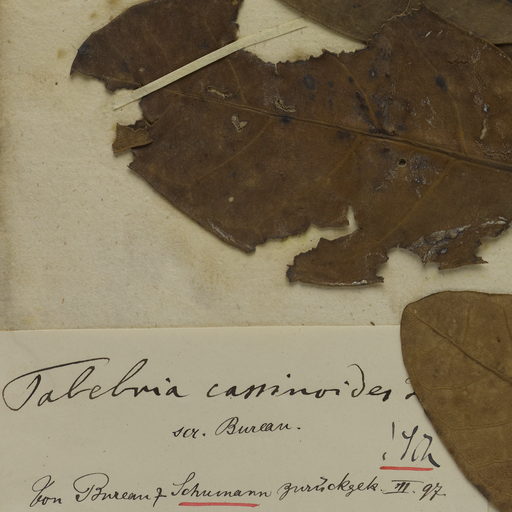 Tabebuia cassinoides
scr. Bureau.
! Sch
Von Bureau & Schumann zurückgek. III. 97